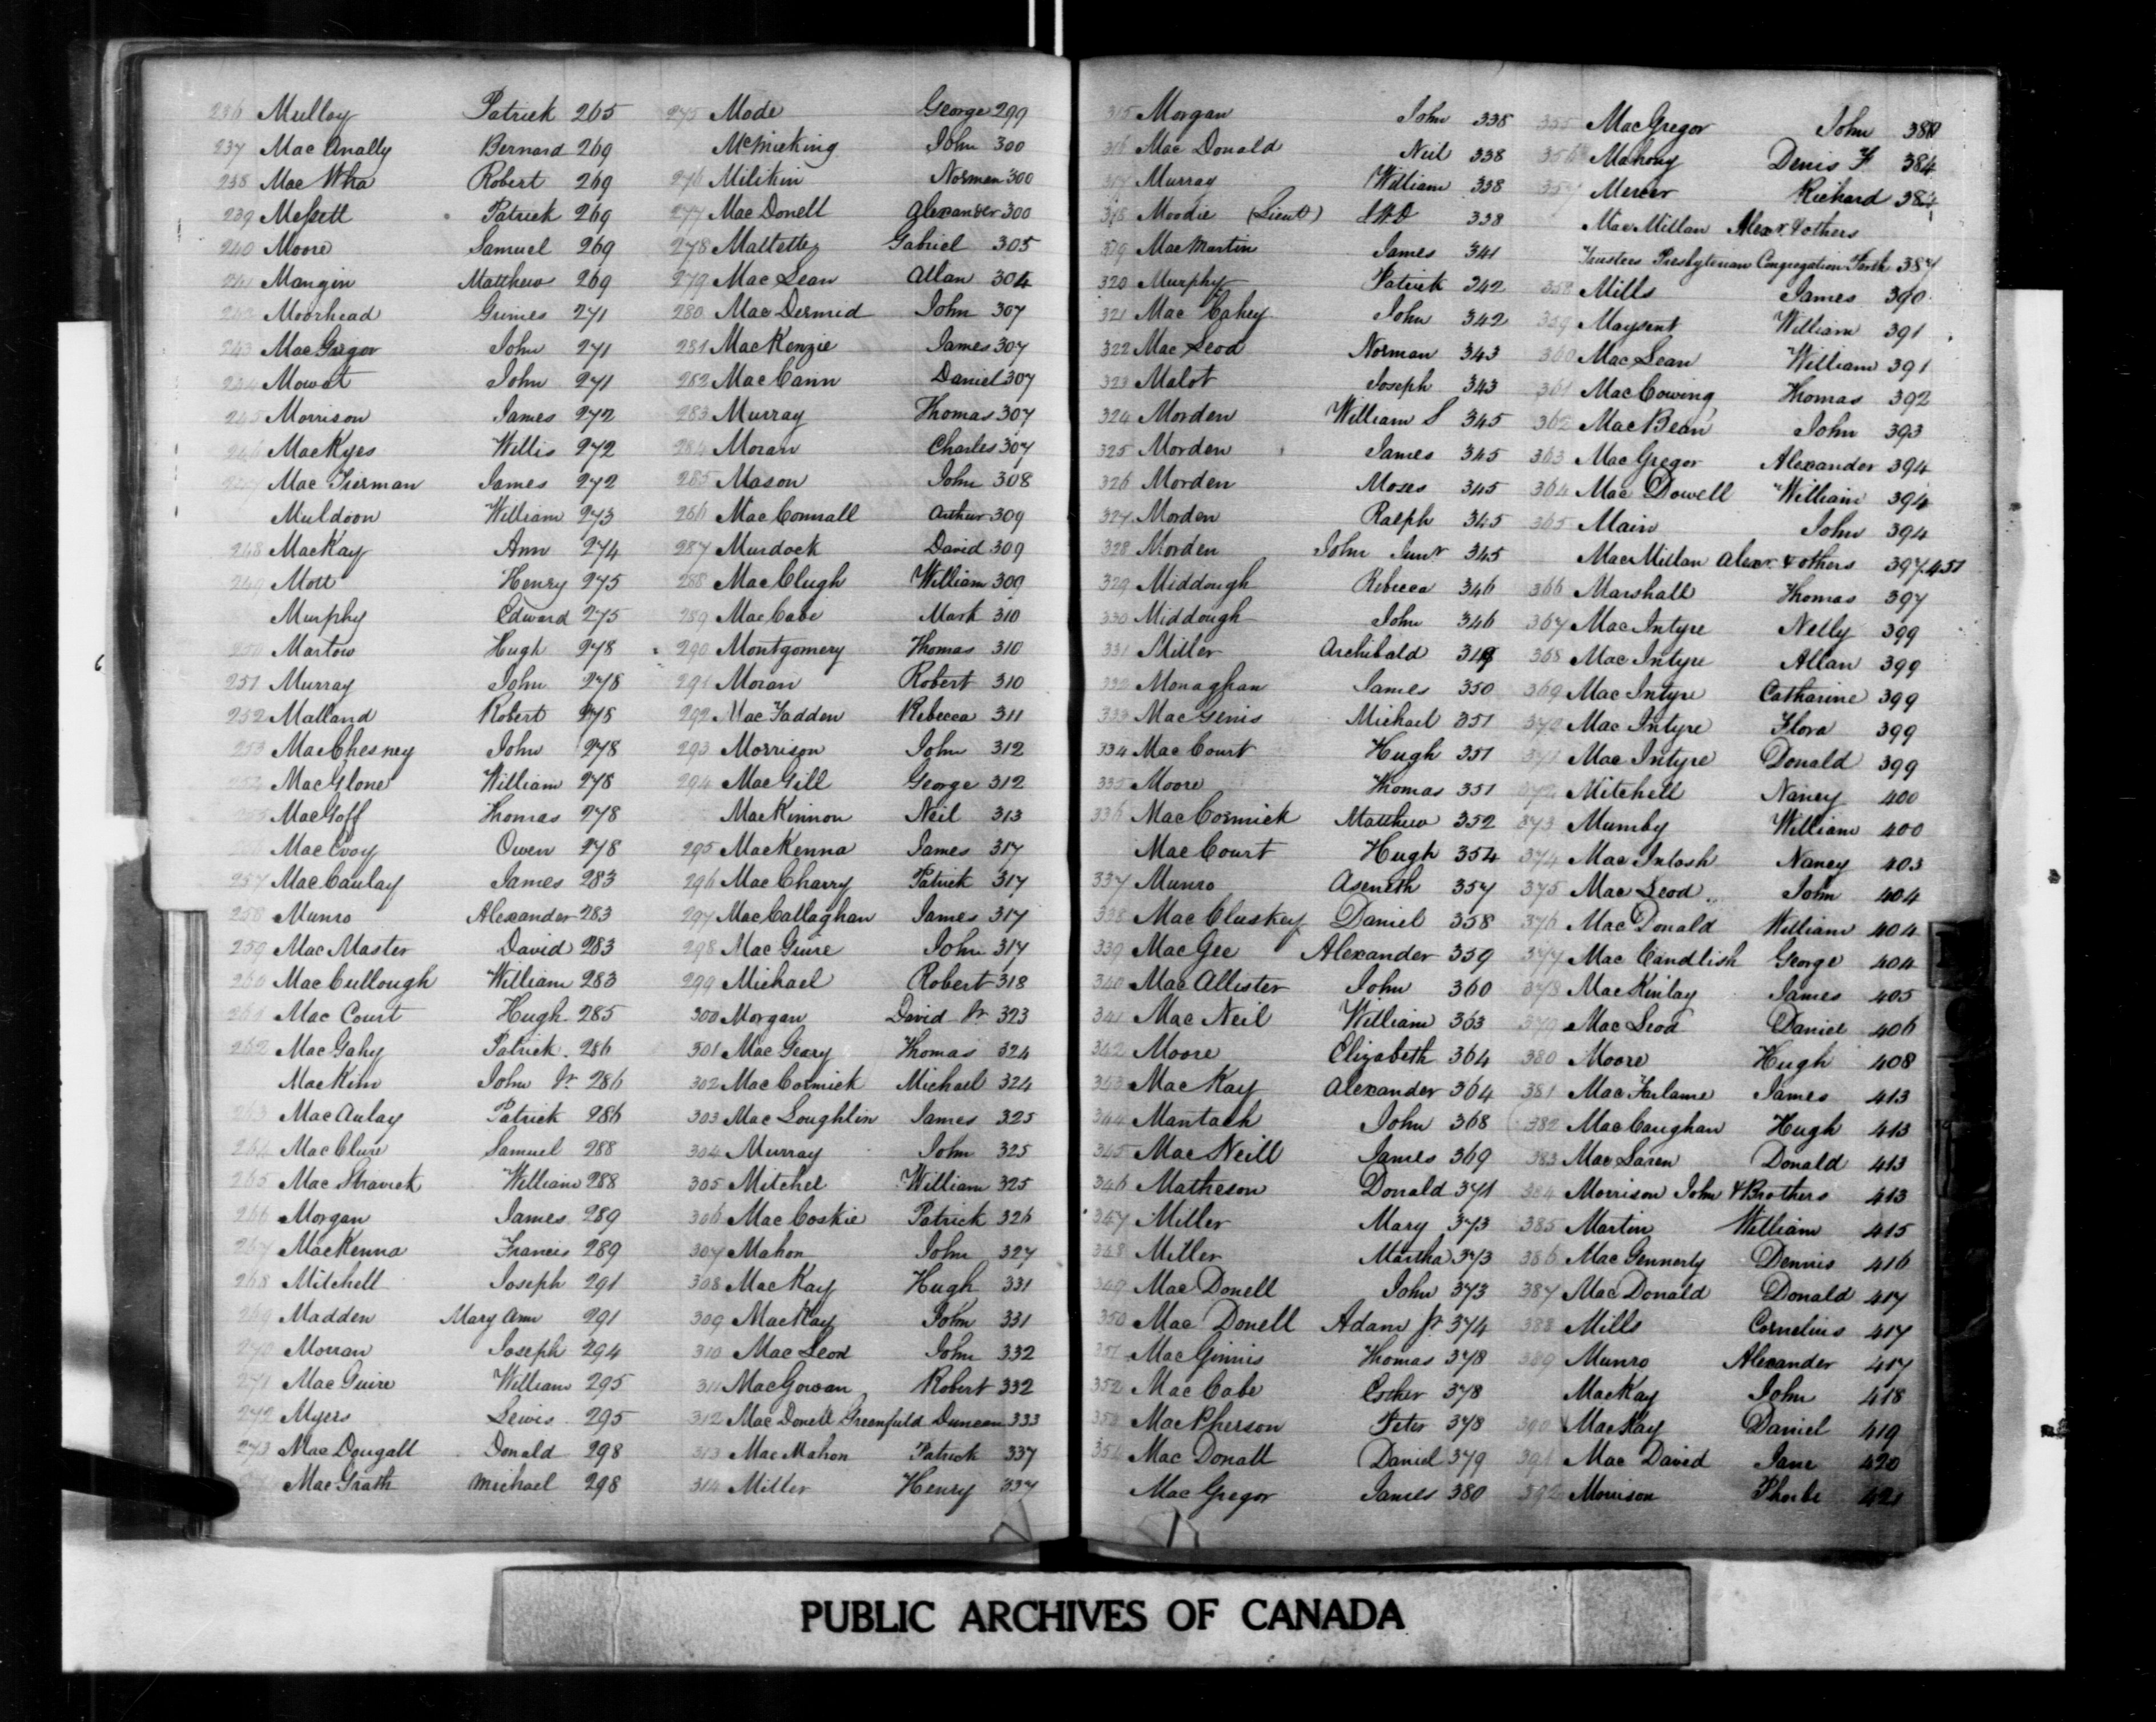 236 Mulloy Patrick 265
237 Mac Anally Bernard 269
238 Mac Wha Robert 269
239 Messett Patrick 269
240 Moore Samuel 269
241 Mangin Matthew 269
242 Moorhead Grimes 271
243 MacGregor John 271
Mowat John 271
245 Morrison James 272
246 MacKyes Willis 272
Mac Tierman James 272
Muldoon William 273
248 MacKay Ann 274
249 Mott Henry 275
Murphy Edward 275
250 Martow Hugh 278
251 Murray John 278
252 Malland Robert 278
253 MacChesney John 278
MacGlone William 278
255 MacGoff Thomas 278
Mac Evoy Owen 278
257 MacCaulay James 283
258 Munro Alexander 283
259 Mac Master David 283
260 MacCullough William 283
261 Mac Court Hugh 285
262 MacGahy Patrick 286
MacKim John Jr 286
263 MacAulay Patrick 286
264 MacClure Samuel 288
265 Mac Shravick William 288
266 Morgan James 289
267 MacKenna Francis 289
268 Mitchell Joseph 291
269 Madden Mary Ann 291
270 Morran Joseph 294
271 MacGuire William 295
272 Myers Lewis 295
273 MacDougall Donald 298
MacGrath Michael 298
275 Mode George 299
McMicking John 300
276 Milikin Norman 300
277 MacDonell Alexander 300
278 Maltette Gabriel 305
279 MacLean Allan 304
280 MacDermid John 307
281 MacKenzie James 307
282 MacCann Daniel 307
283 Murray Thomas 307
284 Moran Charles 307
285 Mason John 308
286 MacConnall Arthur 309
287 Murdock David 309
288 MacClugh William 309
289 MacCabe Mark 310
290 Montgomery Thomas 310
291 Moran Robert 310
292 MacFadden Rebecca 311
293 Morrison John 312
294 MacGill George 312
MacKinnon Neil 313
295 MacKenna James 317
296 MacCharry Patrick 317
297 MacCallaghan James 317
298 MacGuire John 317
299 Michael Robert 318
300 Morgan David Jr 323
301 MacGeary Thomas 324
302 MacCormick Michael 324
303 MacLoughlin James 325
304 Murray John 325
305 Mitchel William 325
306 MacCoskie Patrick 326
307 Mahon John 327
308 MacKay Hugh 331
309 MacKay John 331
310 MacLeod John 332
311 MacGowan Robert 332
312 MacDonell Greenfield Duncan 333
313 MacMahon Patrick 337
314 Miller Henry 337
315 Morgan John 338
316 MacDonald Neil 338
317 Murray William 338
318 Moodie (Lieut) 338
319 MacMartin James 341
320 Murphy Patrick 342
321 Mac Cahey John 342
322 MacLeod Norman 343
323 Malot Joseph 343
324 Morden William S 345
325 Morden James 345
326 Morden Moses 345
327 Morden Ralph 345
328 Morden John Junr 345
329 Middough Rebecca 346
330 Middough John 346
331 Miller Archibald
332 Monaghan James 350
333 MacGenis Michael 351
334 MacCourt Hugh 351
335 Moore Thomas 351
336 MacCormick Matthew 352
MacCourt Hugh 354
337 Munro Aseneth 357
338 MacCluskey Daniel 358
339 MacGee Alexander 359
340 MacAllister John 360
341 MacNeil William 363
342 Moore Elizabeth 364
343 MacKay Alexander 364
344 Mantach John 368
345 MacNeill James 369
346 Matheson Donald 371
347 Miller Mary 373
348 Miller Martha 373
349 MacDonell John 373
350 Mac Donell Adam Jr 374
351 MacGinnis Thomas 378
352 MacCabe Esther 378
353 MacPherson Peter 378
354 MacDonall Daniel 379
MacGregor James 380
355 MacGregor John
356 Mahony Denis F 384
357 Mercer Richard 384
MacMillan Alexr. & others
Trustees Presbyterian Congregation Perth 387
358 Mills James 390
359 Maysent William 391
360 MacLean William 391
361 MacCowing Thomas 392
362 MacBean John 393
363 MacGregor Alexander 394
364 Mac Dowell William 394
365 Main John 394
MacMillan Alexr. & others 397.451
366 Marshall Thomas 397
367 MacIntyre Nelly 399
368 MacIntyre Allan 399
369 MacIntyre Catharine 399
370 MacIntyre Flora 399
371 MacIntyre Donald 399
372 Mitchell Nancy 400
373 Mumby William 400
374 MacIntosh Nancy 403
375 MacLeod John 404
376 MacDonald William 404
377 Mac Candlish George 404
378 MacKinlay James 405
379 MacLeod Daniel 406
380 Moore Hugh 408
381 MacFarlane James 413
382 MacCaughan Hugh 413
383 MacLaren Donald 413
384 Morrison John & Brothers 413
385 Martin William 415
386 MacGennerty Dennis 416
387 MacDonald Donald 417
388 Mills Cornelius 417
389 Munro Alexander 417
MacKay John 418
390 MacKay Daniel 419
391 Mac David Jane 420
392 Morrison Phoebe 421
PUBLIC ARCHIVES OF CANADA